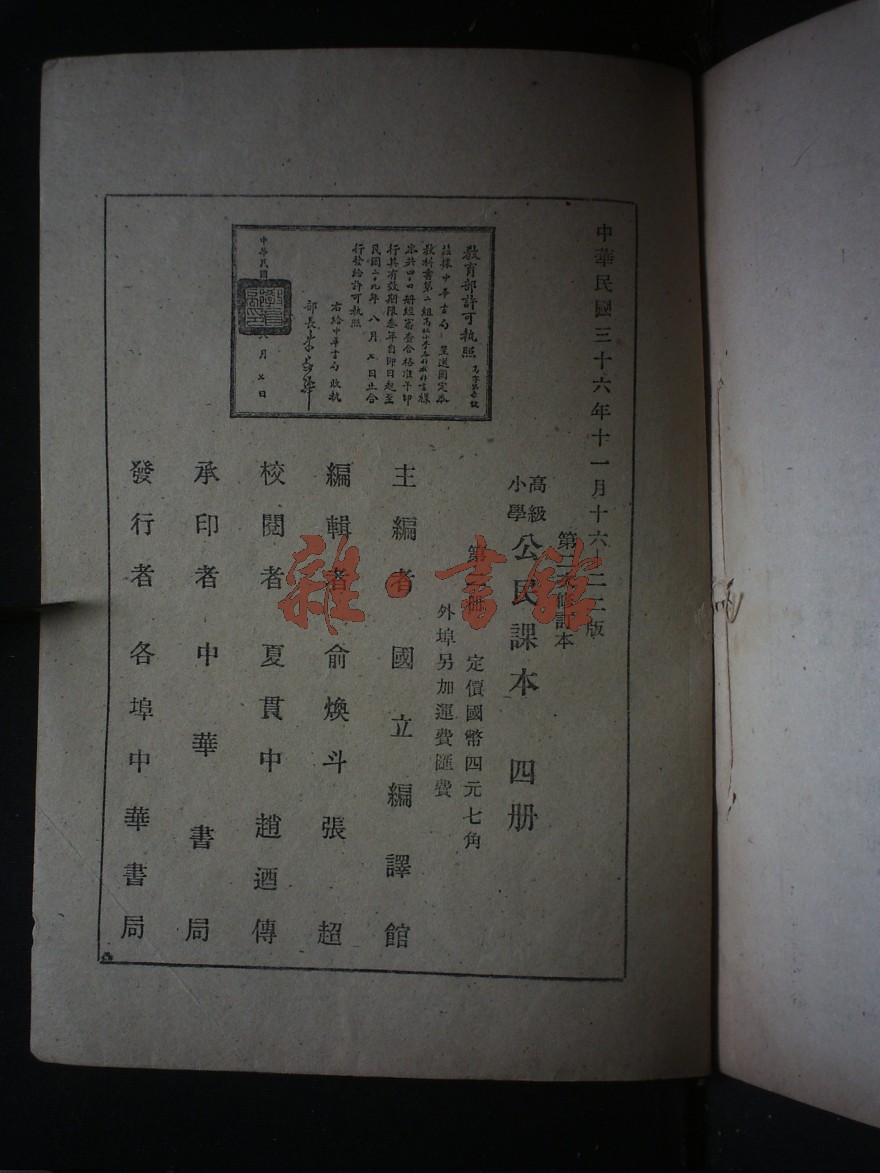 中華民國三十六年十一月十六—二二版
第二次修訂本
高級
小學
公民課本 四册
第 册 定價國幣四元七角
外埠另加運費匯費
主編者 國立編譯館
編輯者 俞煥斗張超
校閱者 夏貫中趙迺傳
承印者 中華書局
發行者 各埠中華書局
教育部許可執照
茲據中華書局呈送國定本
教科書第二組高級小學 樣
本共四 册經審查合格准予印
行其有效期限叁年自即日起至
民國三十九年八月 日止合
行發給許可執照
右給中華書局收執
部長朱家驊
中華民國 八月 日
雜·書館